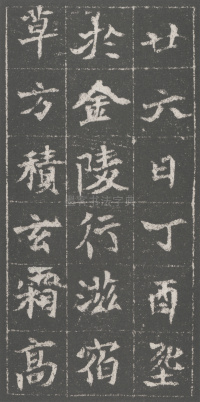 廿六日丁酉堲
於金陵行滋宿
草方積玄霜高